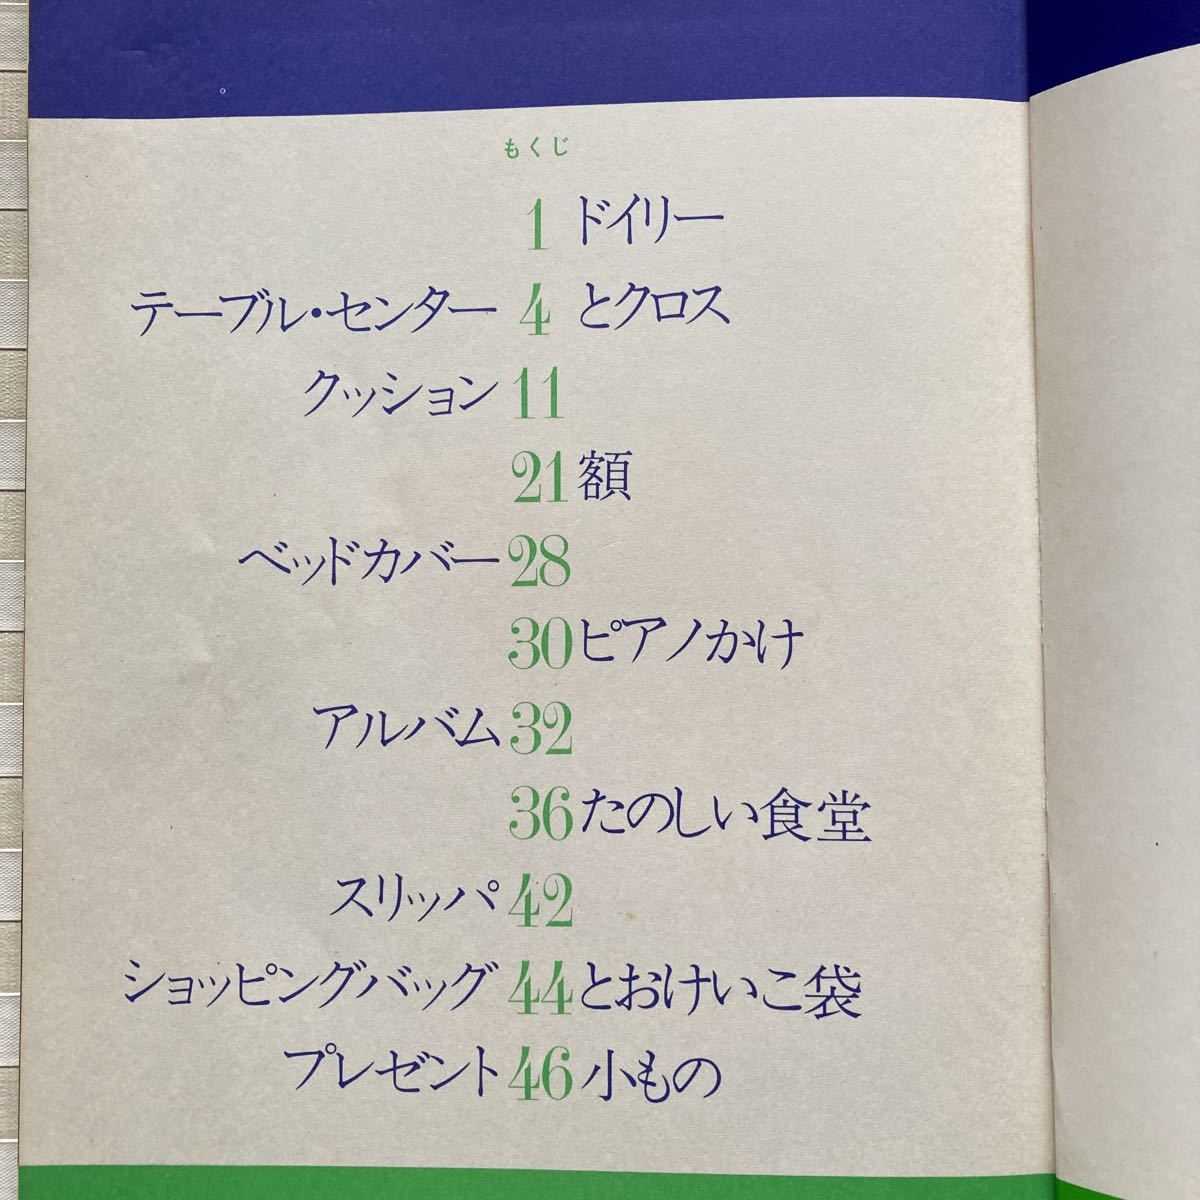 もくじ
1 ドイリー
テーブル・センター 4 とクロス
クッション 11
21 額
ベッドカバー 28
30 ピアノかけ
アルバム 32
36 たのしい食堂
スリッパ 42
ショッピングバッグ 44 とおけいこ袋
プレゼント 46 小もの